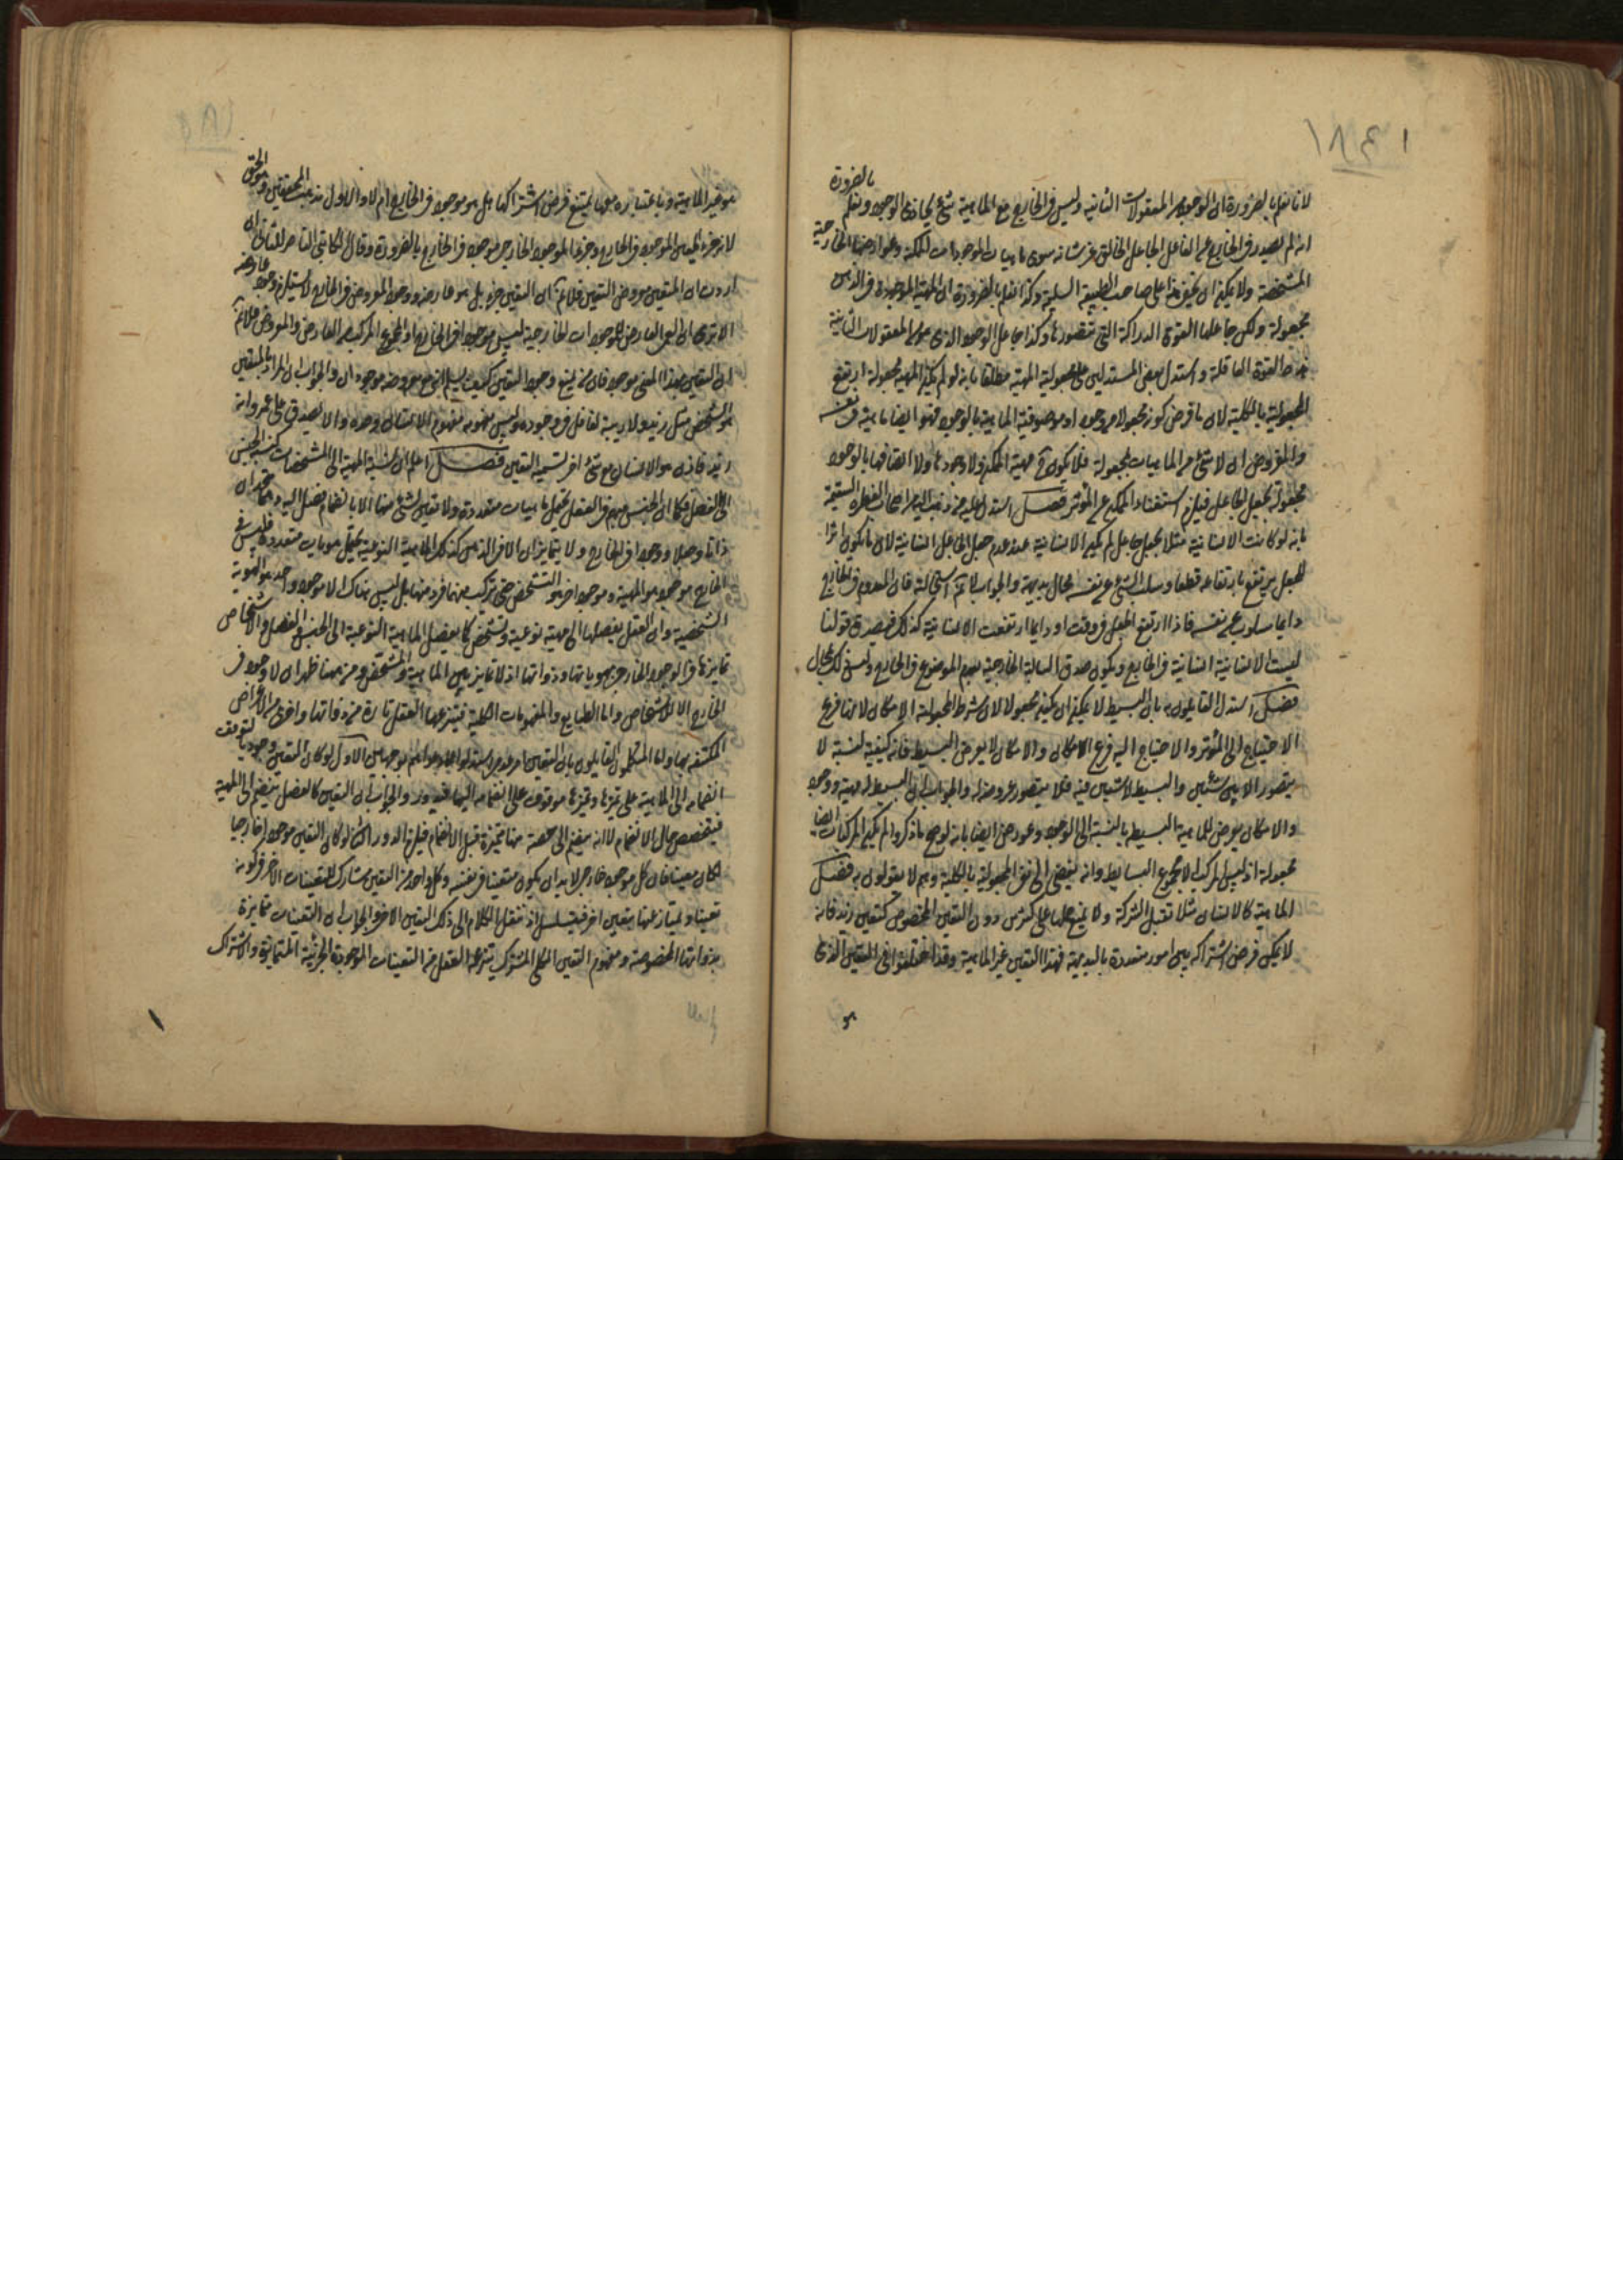 لانا نعلم بالضرورة ان الوجود من المعقولات الثانية وليس في الخارج مع الماهية شئ يحاذى الوجود ونعلم بالضرورة
انه لم يصدر في الخارج عن الفاعل الجاعل الخالق عز شانه سوى ماهيات الموجودات الممكنة وعوارضها الخارجية
المشخصة ولا يمكن ان يخفى هذا على صاحب الطبيعة السليمة وكذا نعلم بالضرورة ان المهية الموجودة في الذهن
مجعولة ولكن جاعلها القوى الدراكة التي تتصورها وكذا جاعل الوجود الذي هو من المعقولات الثانية
القوة العاقلة واستدل بعض المستدلين على مجعولية المهية مطلقا بانه لو لم يكن المهية مجعولة ارتفع
المجعولية بالكلية لان ما فرض كونه مجعولا من وجود او موصوفية الماهية بالوجود فهو ايضا ماهية في نفسه
والمفروض ان لا شئ من الماهيات بمجعولة فلا يكون ح مهية الممكن ولا وجودها ولا اتصافها بالوجود
مجعولة بجعل الجاعل فيلزم استغناء الممكن عن المؤثر فصل استدل عليه من ذهب اليه من اصحاب الفطرة السقيمة
بانه لو كانت الانسانية مثلا بجعل جاعل لم يكن الانسانية عند عدم جعل الجاعل انسانية لان ما يكون اثرا
للجعل يرتفع بارتفاعه قطعا وسلب الشئ عن نفسه محال بديهة والجواب لا نم استحالته فان المعدوم في الخارج
دايما مسلوب عن نفسه فاذا ارتفع الجعل في وقت او دايما ارتفعت الانسانية كذلك فيصدق قولنا
ليست الانسانية انسانية في الخارج ويكون صدق السالبة الخارجية بعدم الموضوع في الخارج وليس ذلك بمحال
فصل استدل القائلون به بان البسيط لا يمكن ان يكون مجعولا لان شرط المجعولية الامكان لانها فرع
الاحتياج الى المؤثر والاحتياج اليه فرع الامكان والامكان لا يعرض البسيط فانه كيفية نسبة لا
يتصور الا بين شئين والبسيط لا شئين فيه فلا يتصور عروضه له والجواب ان البسيط له مهية ووجود
والامكان يعرض للماهية البسيط بالنسبة الى الوجود وعورض ايضا بانه لو صح ما ذكروا لم يكن المركبات ايضا
مجعولة اذ ليس المركب الا مجموع البسايط وانه يفضى الى نفى المجعولية بالكلية وهم لا يقولون به فصل
الماهية كالانسان مثلا تقبل الشركة ولا يمنع حملها على كثيرين دون التعين المخصوص كتعين زيد فانه
لا يمكن فرض اشتراكه بين امور متعددة بالبديهة فهذا التعين غير الماهية وقد اختلفوا في التعين الذي
هو
هو غير الماهية وباعتباره معها يمتنع فرض اشتراكها هل هو موجود في الخارج ام لا والاول مذهب المحققين وهو الحق
لانه جزء المتعين الموجود في الخارج وجزء الموجود الخارجي موجود في الخارج بالضرورة وقال الكاتبي الناصر للثاني ان
اردت ان المتعين معروض التعين فلا نم ان التعين جزء بل هو عارضه ووجود المعروض في الخارج لا يستلزم وجود عارضه
الا ترى ان العمى العارض للموجودات الخارجية ليس موجودا في الخارج او المجموع المركب من العارض والمعروض فلا نم
ان التعين بهذا المعنى موجود فان من يمنع وجود التعين كيف يسلم انه مع معروضه موجودان والجواب ان المراد بالمتعين
هو الشخص مثل زيد ولا ريبة لعاقل في وجوده وليس مفهومه مفهوم الانسان وحده والا لصدق على عمرو انه
زيد فاذن هو الانسان مع شئ اخر نسميه التعين فصل اعلم ان نسبة المهية الى المشخصات كنسبة الجنس
الى الفصل فكما ان الجنس مبهم في العقل يحتمل ماهيات متعددة ولا تعين لشئ منها الا بانضمام فصل اليه وهما متحدان
ذاتا وجعلا ووجودا في الخارج ولا يتمايزان الا في الذهن كذلك الماهية النوعية يحتمل هويات متعددة فليس في
الخارج موجود هو المهية وموجود اخر هو التشخص حتى تركب منهما فرد منها بل ليس هناك الا موجود واحد هو الهوية
الشخصية وان العقل يفصلها الى مهية نوعية وتشخص كما يفصل الماهية النوعية الى الجنس والفصل والاشخاص
تمايزها في الوجود الخارجي بهوياتها وذواتها اذ لا تمايز بين الماهية والتشخص ومن ههنا ظهر ان لا وجود في
الخارج الا للاشخاص واما الطبايع والمفهومات الكلية فينتزعها العقل تارة من ذواتها واخرى من الاعراض
المكتنفة بها واما المتكلمون القائلون بان التعين امر عدمي استدلوا على وجوه بين الاول لو كان التعين وجوديا لتوقف
انضمامه الى الماهية على تميزها وتميزها موقوف على انضمامه اليها فيدور والجواب ان التعين كالفصل ينضم الى المهية
فيتخصص حال الانضمام لا انه منضم الى حصة منها متميزة قبل الانضمام فيلزم الدور الثاني لو كان التعين موجودا خارجيا
لكان معينا فان كل موجود خارجي لا بد ان يكون متعينا في نفسه وكل واحد من التعين يشارك التعينات الاخر في كونه
تعينا ويمتاز عنها بتعين اخر فيتسلسل اذ ننقل الكلام الى ذلك التعين الاخر والجواب ان التعينات متمايزة
بذواتها المخصوصة ومفهوم التعين الكلي المشترك ينتزعه العقل من التعينات الموجودة الجزئية المتمايزة والاشتراك